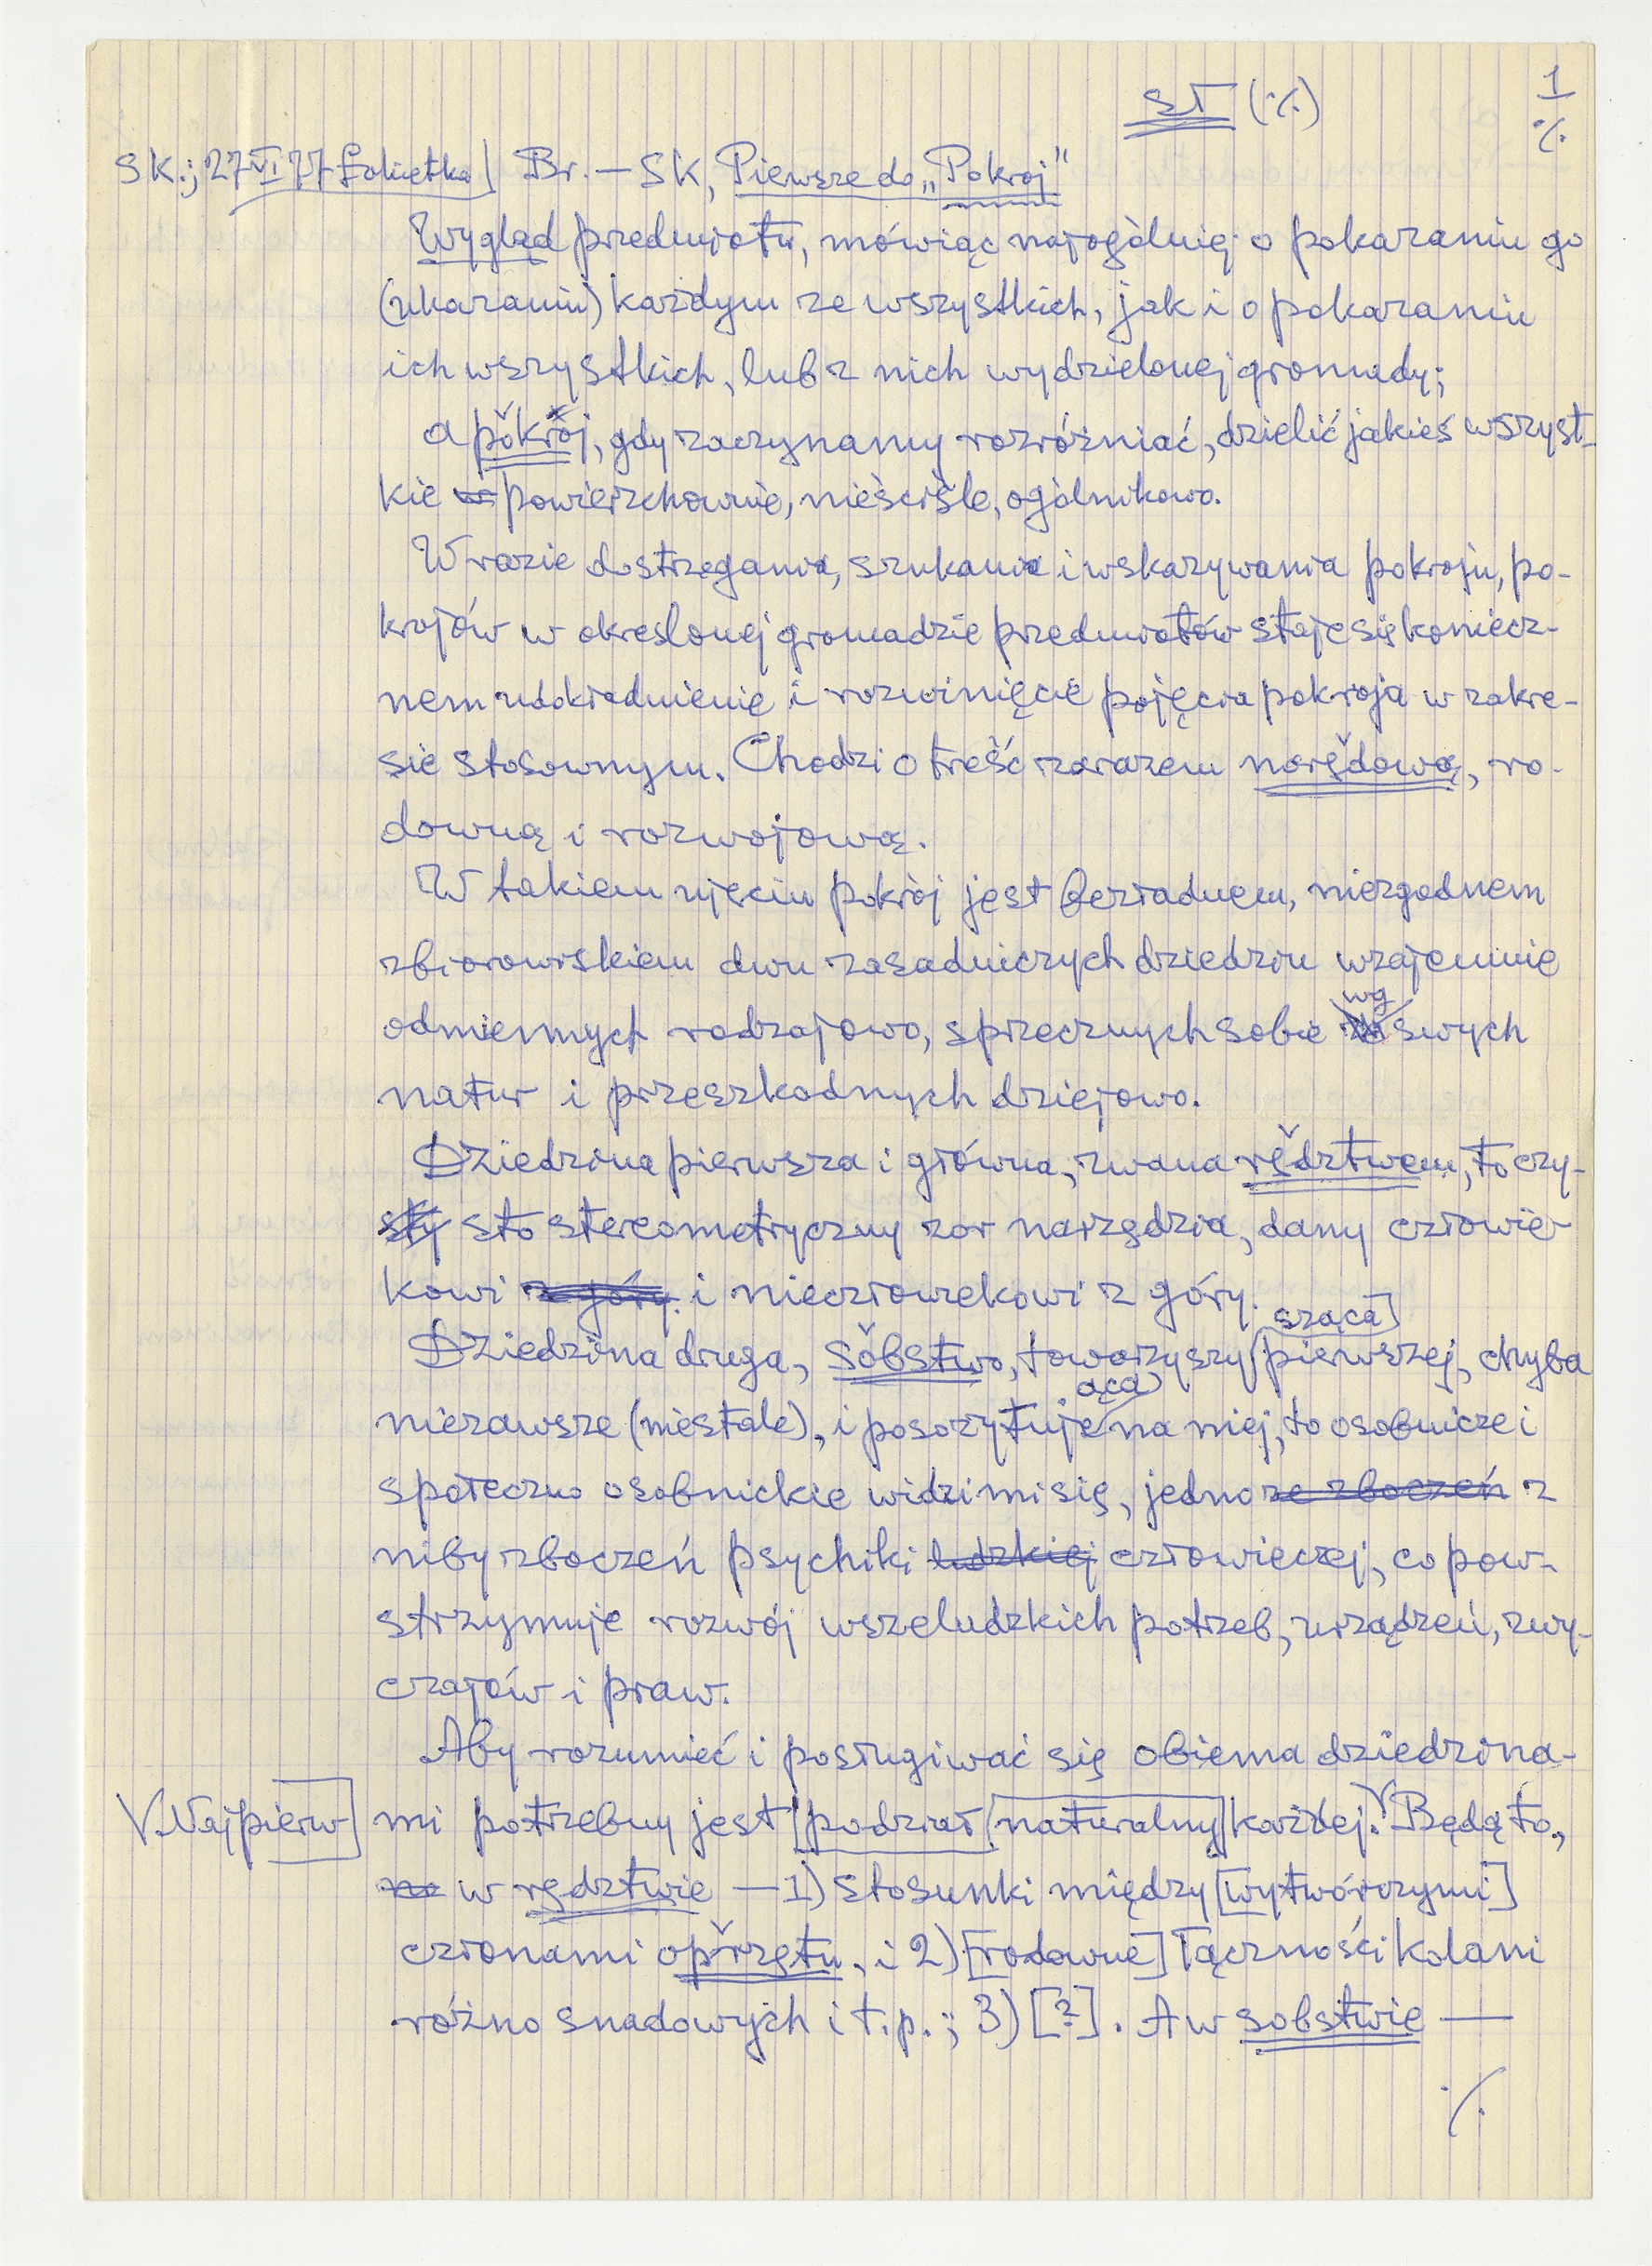 ST (·/·)
1
·/·
SK.; 27 VI 77 Łokietka] Br. — SK, Pierwsze do „Pokrój”
Wygląd przedmiotu, mówiąc najogólniej o pokazaniu go
(ukazaniu) każdym ze wszystkich, jak i o pokazaniu
ich wszystkich, lub z nich wydzielonej gromady;
a pǒkrǒj, gdy zaczynamy rozróżniać, dzielić jakieś wszyst-
kie powierzchownie, nieściśle, ogólnikowo.
W razie dostrzegania, szukania i wskazywania pokroju, po-
krojów w określonej gromadzie przedmiotów staje się koniecz-
nem udokładnienie i rozwinięcie pojęcia pokroja w zakre-
sie stosownym. Chodzi o treść zarazem narę̌dową, ro-
downą i rozwojową.
W takiem ujęciu pokrój jest bezładnem, niezgodnem
zbiorowiskiem dwu zasadniczych dziedzin wzajemnie
odmiennych rodzajowo, sprzecznych sobie wg swych
natur i przeszkodnych dziejowo.
Dziedzina pierwsza i główna, zwana rę̌dztwem, to czy-
sty sto stereometryczny zor narzędzia, dany człowie-
kowi z góry. i nieczłowiekowi z góry.
Dziedzina druga, sǒbstwo, towarzyszy [szącą] pierwszej, chyba
niezawsze (niestale), i pasożytuje (ącą) na niej, to osobnicze i
społeczno osobnickie widzimisię, jedno ze zboczeń z
niby zboczeń psychiki ludzkiej człowieczej, co pow-
strzymuje rozwój wszeludzkich potrzeb, urządzeń, zwy-
czajów i praw.
Aby rozumieć i posługiwać się obiema dziedzina-
V. Najpierw] mi potrzebny jest [podział [naturalny] każdej. V Będą to,
na w rędztwie — 1) stosunki między [wytwórczymi]
członami opřzętu, i 2) [rodowne] łączności kolani
różno snadowych i t.p.; 3) [?]. A w sobstwie —
·/·